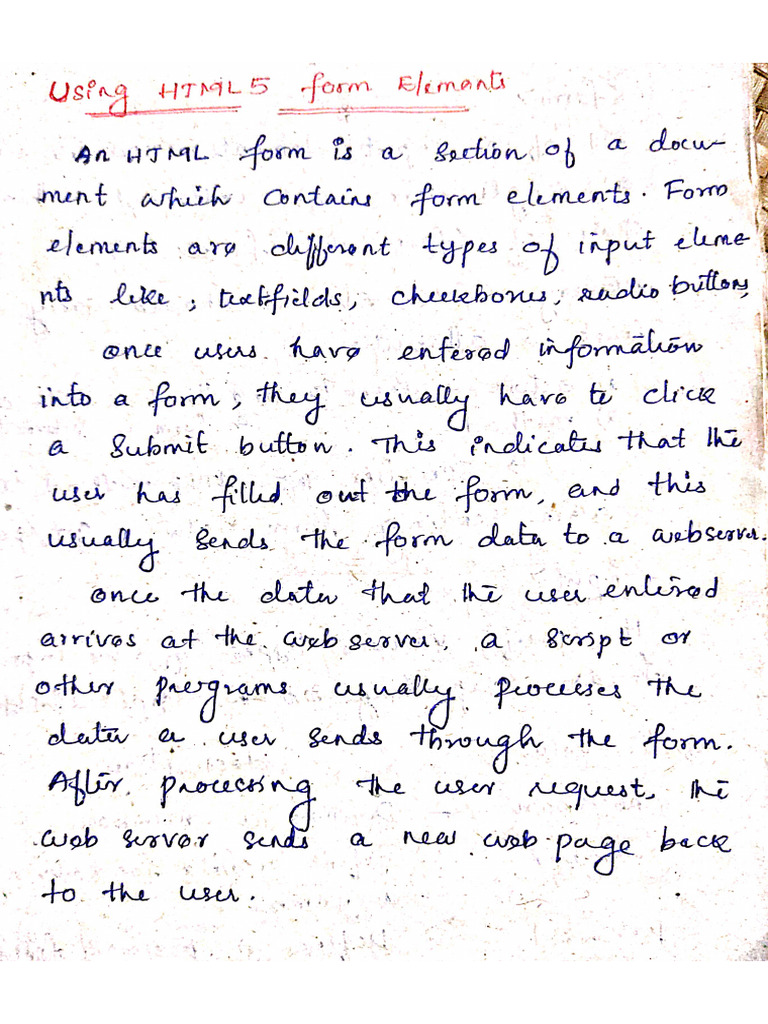 Using HTML5 form Elements
An HTML form is a section of a docu-
ment which contains form elements. Form
elements are different types of input eleme-
nts like, textfields, checkboxes, radio buttons,
once users have entered information
into a form, they usually have to click
a Submit button. This indicates that the
user has filled out the form, and this
usually sends the form data to a webserver.
once the data that the user entered
arrives at the web server, a script or
other programs usually processes the
data a user sends through the form.
After processing the user request, the
web server sends a new web page back
to the user.